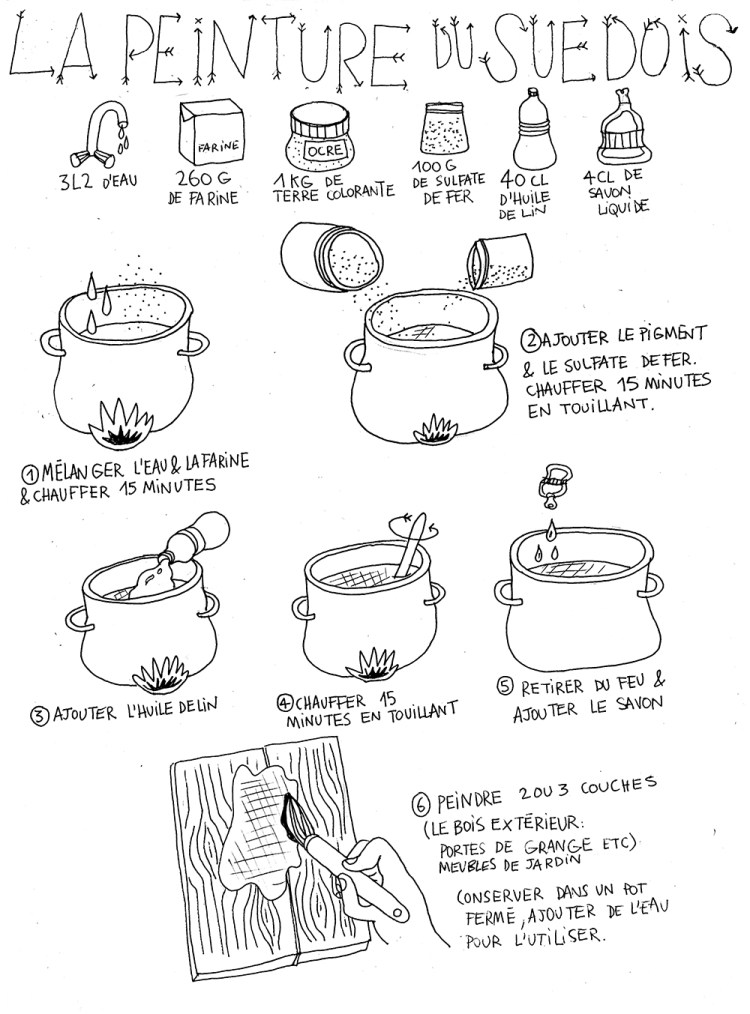 LA PEINTURE DU SUEDOIS
3L2 D'EAU
FARINE
260 G
DE FARINE
OCRE
1 KG DE
TERRE COLORANTE
100 G
DE SULFATE
DE FER
40 CL
D'HUILE
DE LIN
4 CL DE
SAVON
LIQUIDE
① MÉLANGER L'EAU & LA FARINE
& CHAUFFER 15 MINUTES
② AJOUTER LE PIGMENT
& LE SULFATE DE FER.
CHAUFFER 15 MINUTES
EN TOUILLANT.
③ AJOUTER L'HUILE DE LIN
④ CHAUFFER 15
MINUTES EN TOUILLANT
⑤ RETIRER DU FEU &
AJOUTER LE SAVON
⑥ PEINDRE 2 OU 3 COUCHES
(LE BOIS EXTÉRIEUR:
PORTES DE GRANGE ETC)
MEUBLES DE JARDIN
CONSERVER DANS UN POT
FERMÉ, AJOUTER DE L'EAU
POUR L'UTILISER.